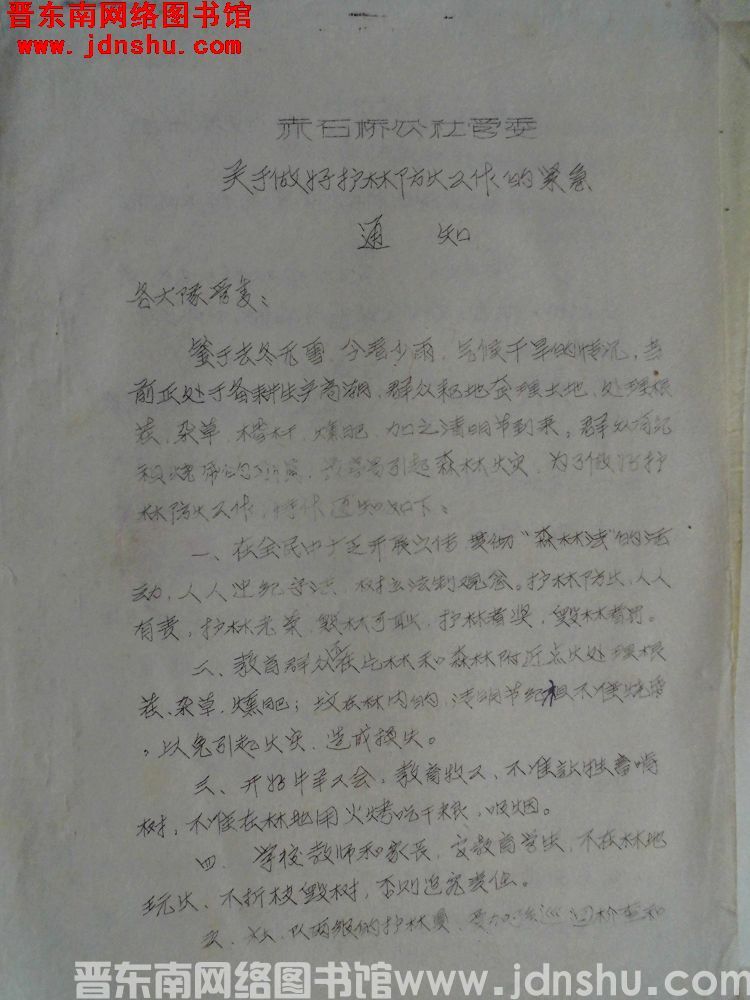 晋东南网络图书馆
www.jdnshu.com
赤石桥公社管委
关于做好护林防火工作的紧急
通 知
各大队管委：
鉴于去冬无雪，今春少雨，气候干旱的情况，当
前正处于备耕生产高潮，群众耙地整理土地，处理根
茬、杂草、楂杆、熏肥，加之清明节到来，群众有纪
祖烧 的习 ，最容易引起森林火灾，为了做好护
林防火工作，特作通知如下：
一、在全民中广泛开展宣传贯彻“森林法”的活
动，人人 纪守法，树立法制观念。护林防火，人人
有责，护林光荣，毁林可耻，护林者奖，毁林者罚。
二、教育群众不在片林和森林附近点火处理根
茬、杂草、熏肥；坟在林内的，清明节纪祖不准烧香
，以免引起火灾，造成损失。
三、开好牛羊工会，教育牧工，不准让牲畜啃
树，不准在林地用火烤吃干粮，吸烟。
四、学校教师和家长，要教育学生，不在林地
玩火、不折枝毁树，否则追究责任。
五、社、队两级的护林员，要加强巡回检查和
晋东南网络图书馆www.jdnshu.com